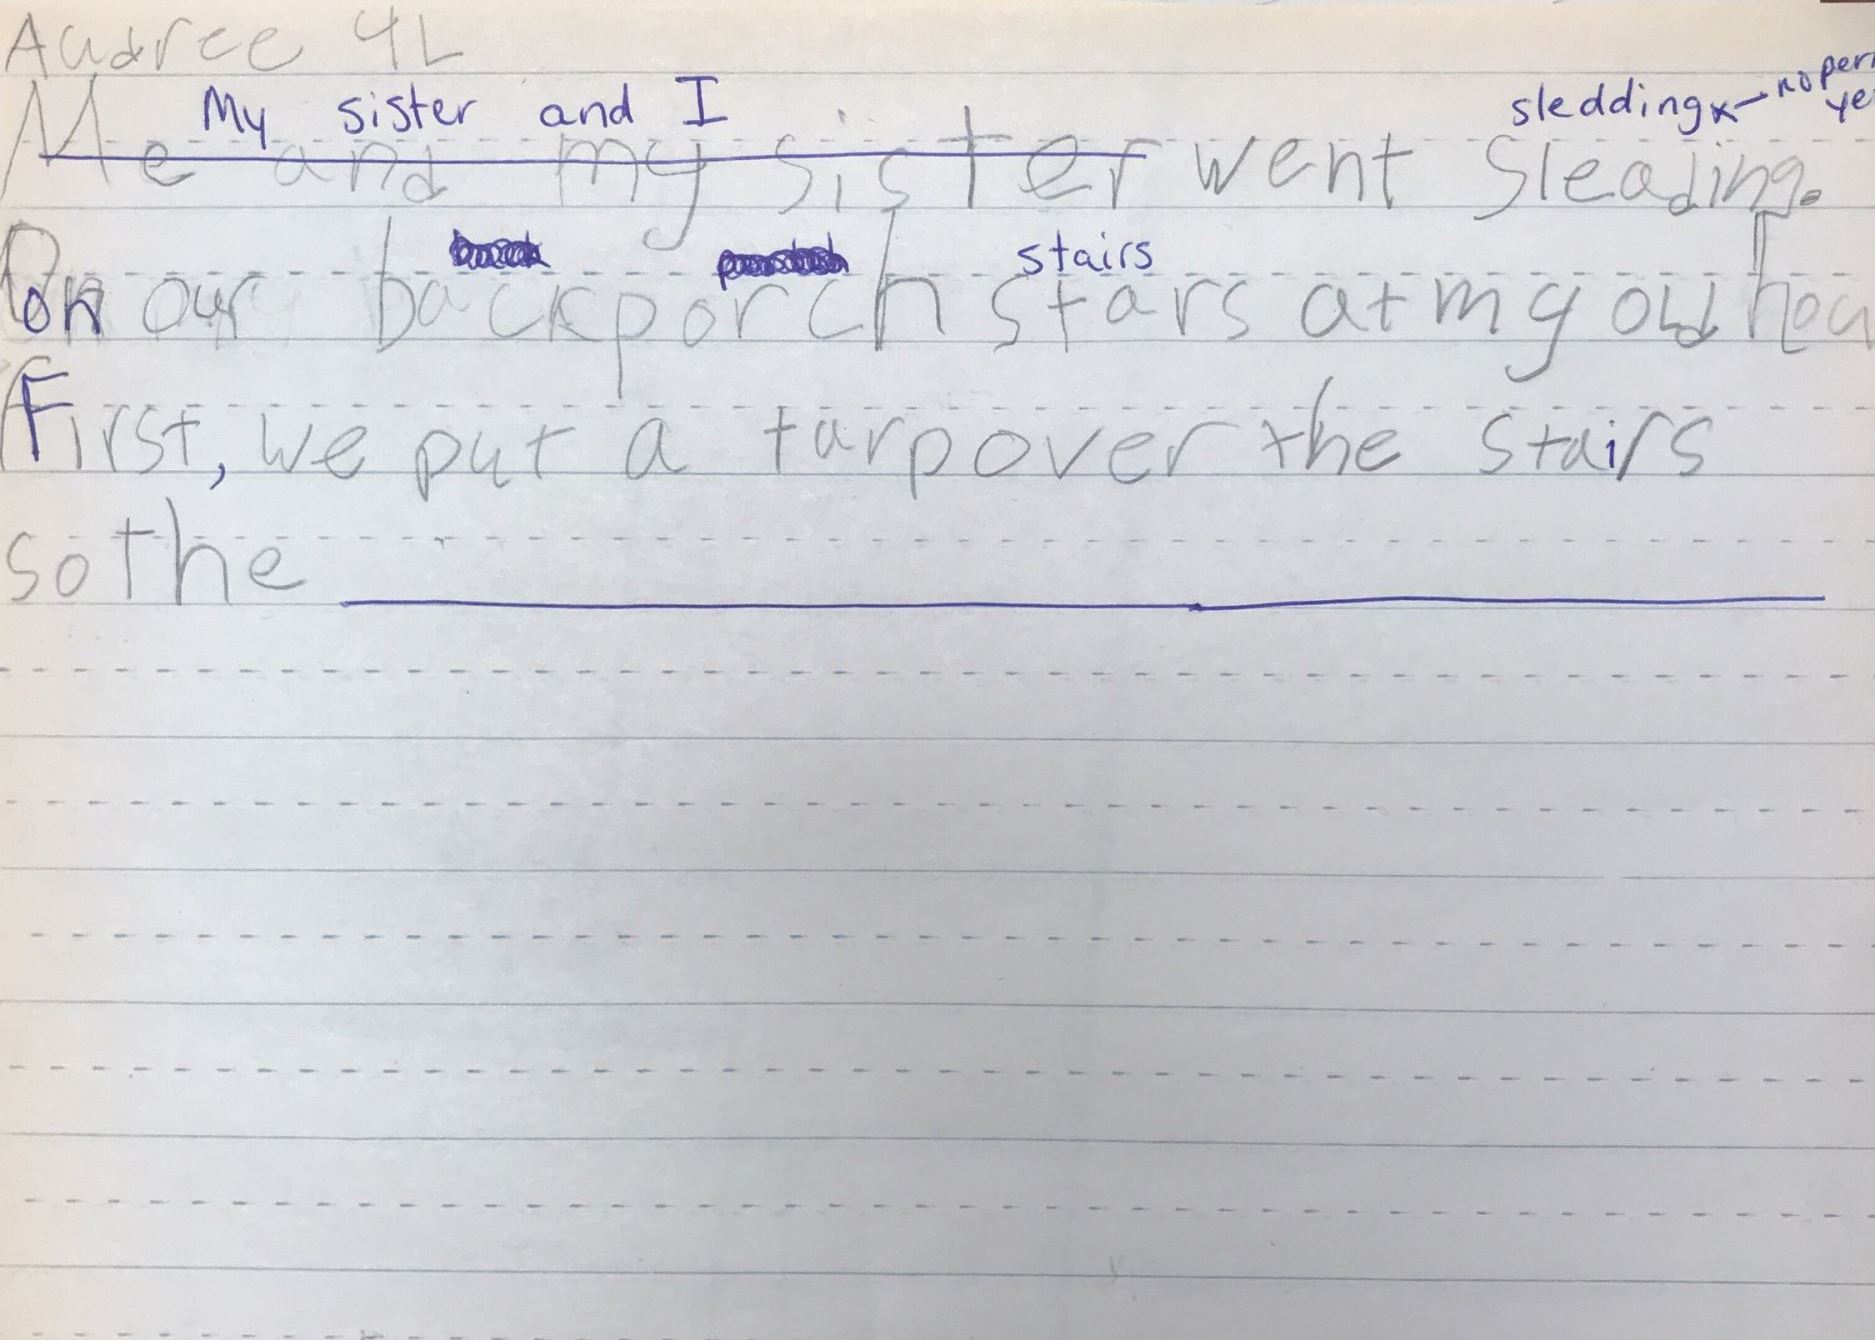 Audree 4L
My sister and I sledding no
Me and my sister went Sleading.
stairs
On our backporch stars at my old
First, we put a tarp over the stairs
so the